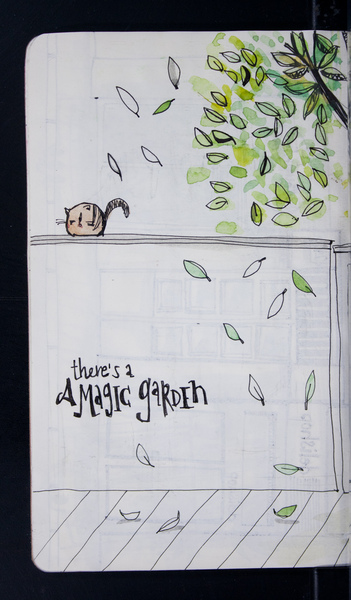 there's a
A MAGIC gaRDEN